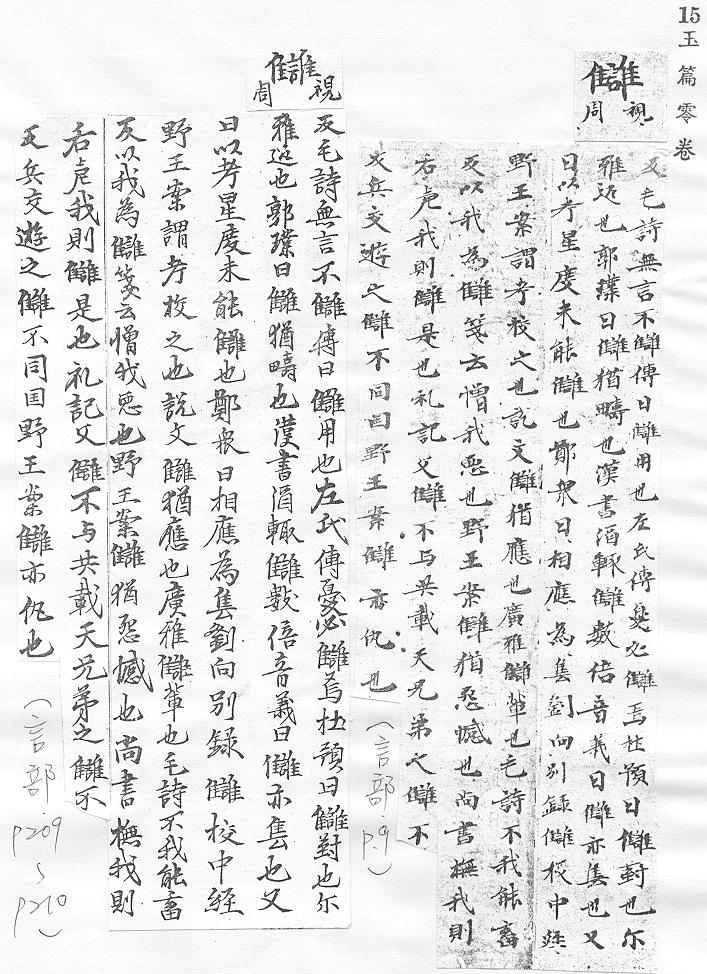 15玉篇零卷
讎
視
周
反毛詩無言不讎傳曰讎用也左氏傳憂必讎焉杜預曰讎對也尓
雅迊也郭璞曰讎猶疇也漢書酒輙讎數倍音義曰讎亦售也又
曰以考星度未能讎也鄭衆曰相應為售劉向別録讎校中經
野王案謂考校之也說文讎猶應也廣雅讎軰也毛詩不我能畜
反以我為讎箋云憎我惡也野王案讎猶惡憾也尚書撫我則
右虐我則讎是也礼記父讎不与共載天兄弟之讎不
反兵交遊之讎不同国野王案讎亦仇也
（言部 p.9）
讎
視
周
反毛詩無言不讎傳曰讎用也左氏傳憂必讎焉杜預曰讎對也尓
雅迊也郭璞曰讎猶疇也漢書酒輙讎數倍音義曰讎亦售也又
曰以考星度未能讎也鄭衆曰相應為售劉向別録讎校中經
野王案謂考校之也說文讎猶應也廣雅讎軰也毛詩不我能畜
反以我為讎箋云憎我惡也野王案讎猶惡憾也尚書撫我則
右虐我則讎是也礼記父讎不与共載天兄弟之讎不
反兵交遊之讎不同国野王案讎亦仇也
（言部 p209〜p210）